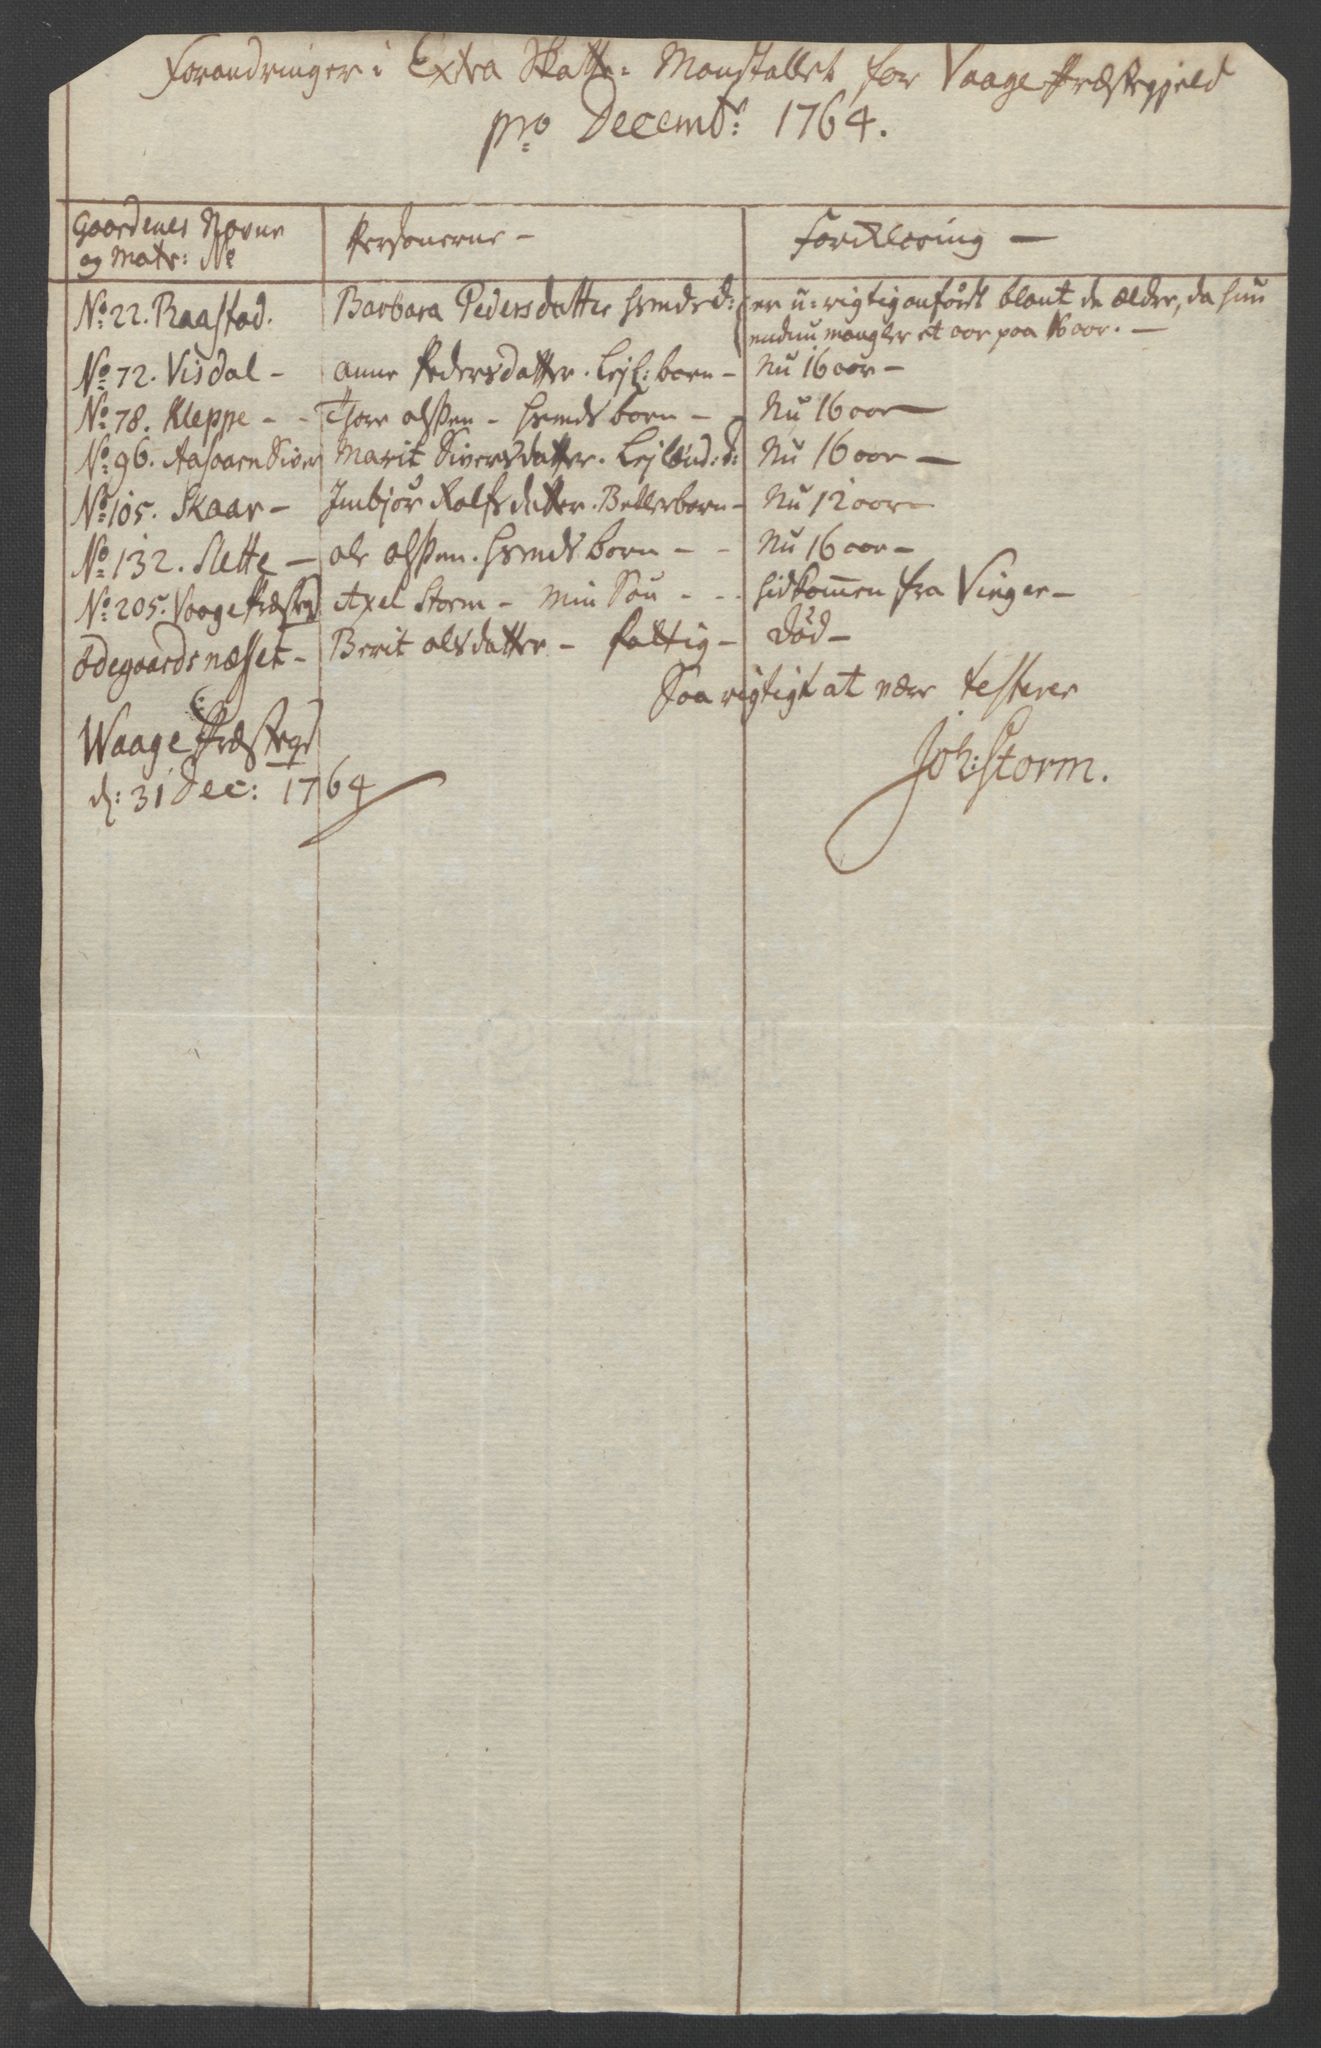 Forandringer i Extra Skatte: Mandtallet for Vaage Præstegjeld
pro Decembr: 1764.
Gaardenes Navne
og Matr: No
Personerne -
Forklaring -
No: 22. Raastad. Barbara Pedersdatter hsmds d: er u-rigtig anfördt blant de ælder, da hun
endnu mangler et aar paa 16 aar. -
No 72. Visdal - Anne Pedersdatter. Lejl: barn - Nu 16 aar -
No: 78. Kleppe - - Thore olsßen - hsmds barn - - Nu 16 aar -
No: 96. Aasaaren Siver Marit Siversdatter. Lejlænd: d: Nu 16 aar -
No 105. Skaar - Imbjör Rolfsdatter. Betlerbarn - Nu 12 aar -
No 132. Slette - ole olsßen. hsmds barn - - Nu 16 aar -
No: 205. Vaage Præstegd Axel Storm - Min Sön - - - hidkom̄en fra Vinger -
Ödegaards næsset - Berit olsdatter - fattig - Död -
Saa rigtigt at være testerer
Waage Præstegd
d: 31 Dec: 1764
Joh: Storm.